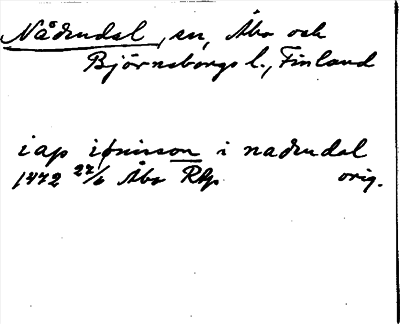 Nådendal, sn, Åbo och
Björneborgs l., Finland
iap iønisson i nadendal
1472 27/6 Åbo Rtp orig.